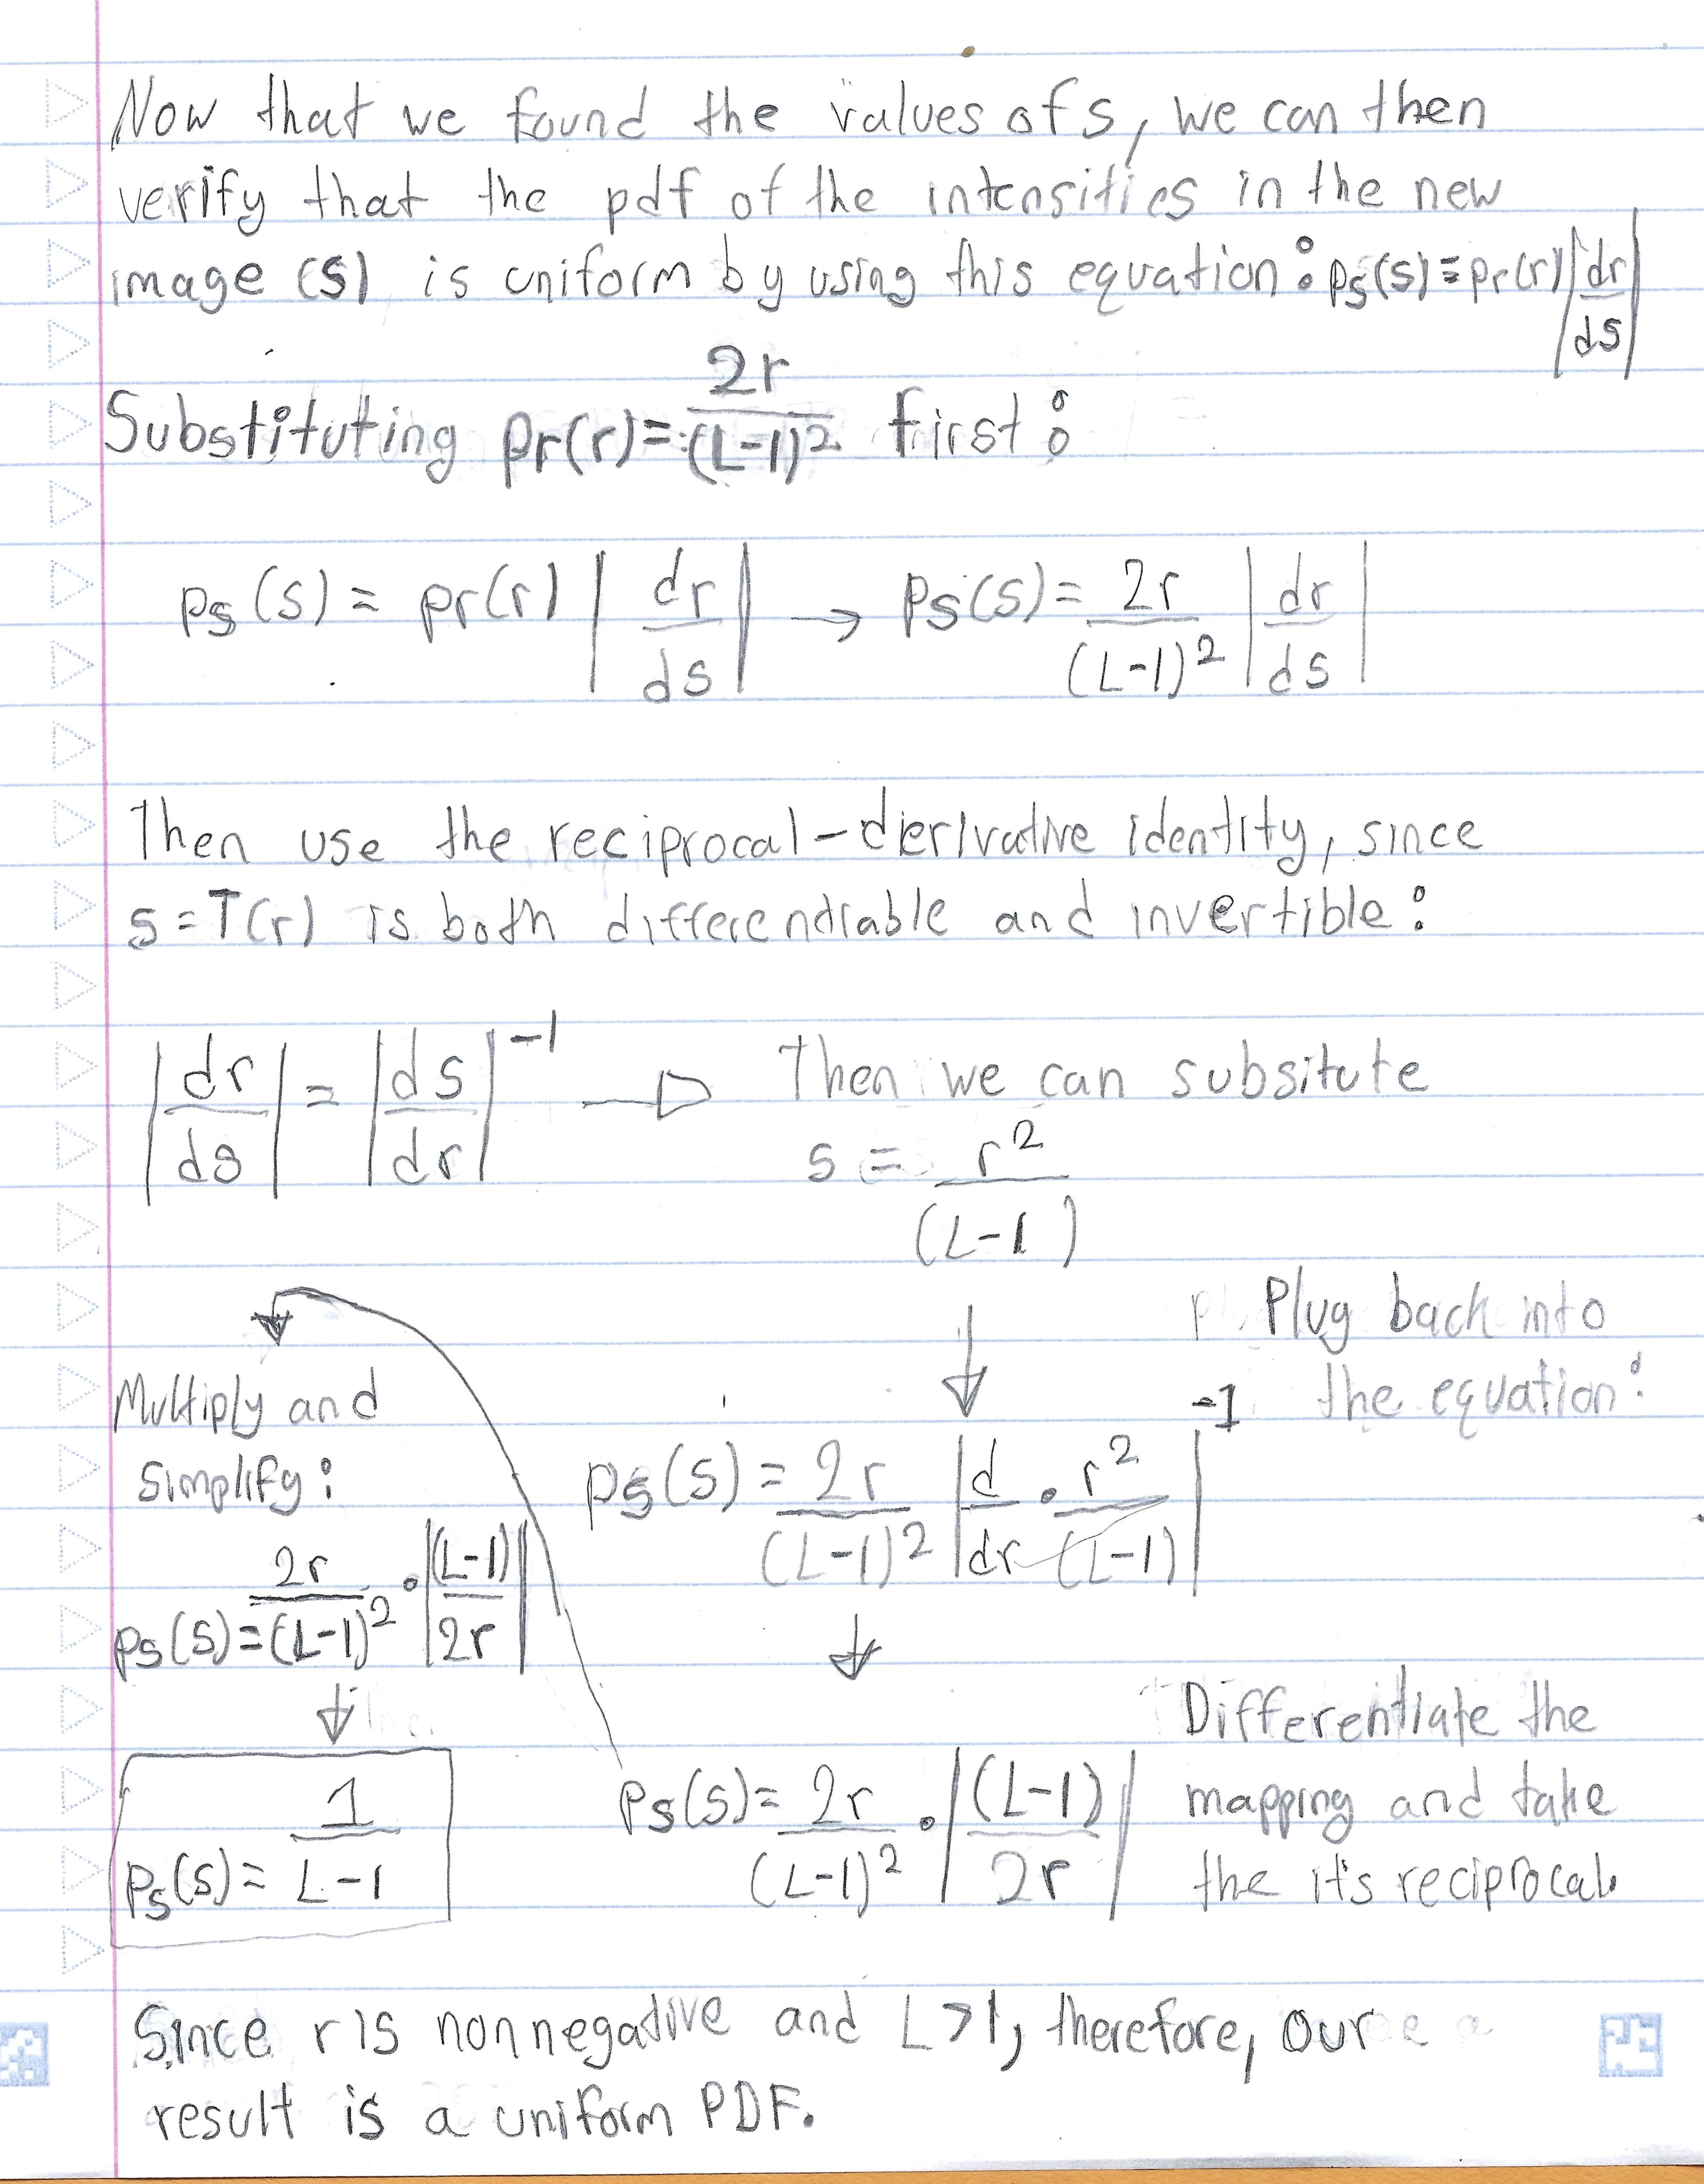 Now that we found the values of s, we can then
verify that the pdf of the intensities in the new
image (s) is uniform by using this equation: ps(s) = pr(r) |dr/ds|
Substituting pr(r) = 2r/(L-1)² first:
ps(s) = pr(r) |dr/ds| → ps(s) = 2r/(L-1)² |dr/ds|
Then use the reciprocal-derivative identity, since
s = T(r) is both differendiable and invertible:
|dr/ds| = |ds/dr|⁻¹ → Then we can subsitute
s = r²/(L-1)
Plug back into
the equation:
ps(s) = 2r/(L-1)² |d/dr · r²/(L-1)|⁻¹
Differentiate the
mapping and take
the it's reciprocal.
ps(s) = 2r/(L-1)² · |(L-1)/2r|
Multiply and
Simplify:
ps(s) = 2r/(L-1)² · |(L-1)/2r|
ps(s) = 1/L-1
Since r is nonnegative and L>1, therefore, our
result is a uniform PDF.